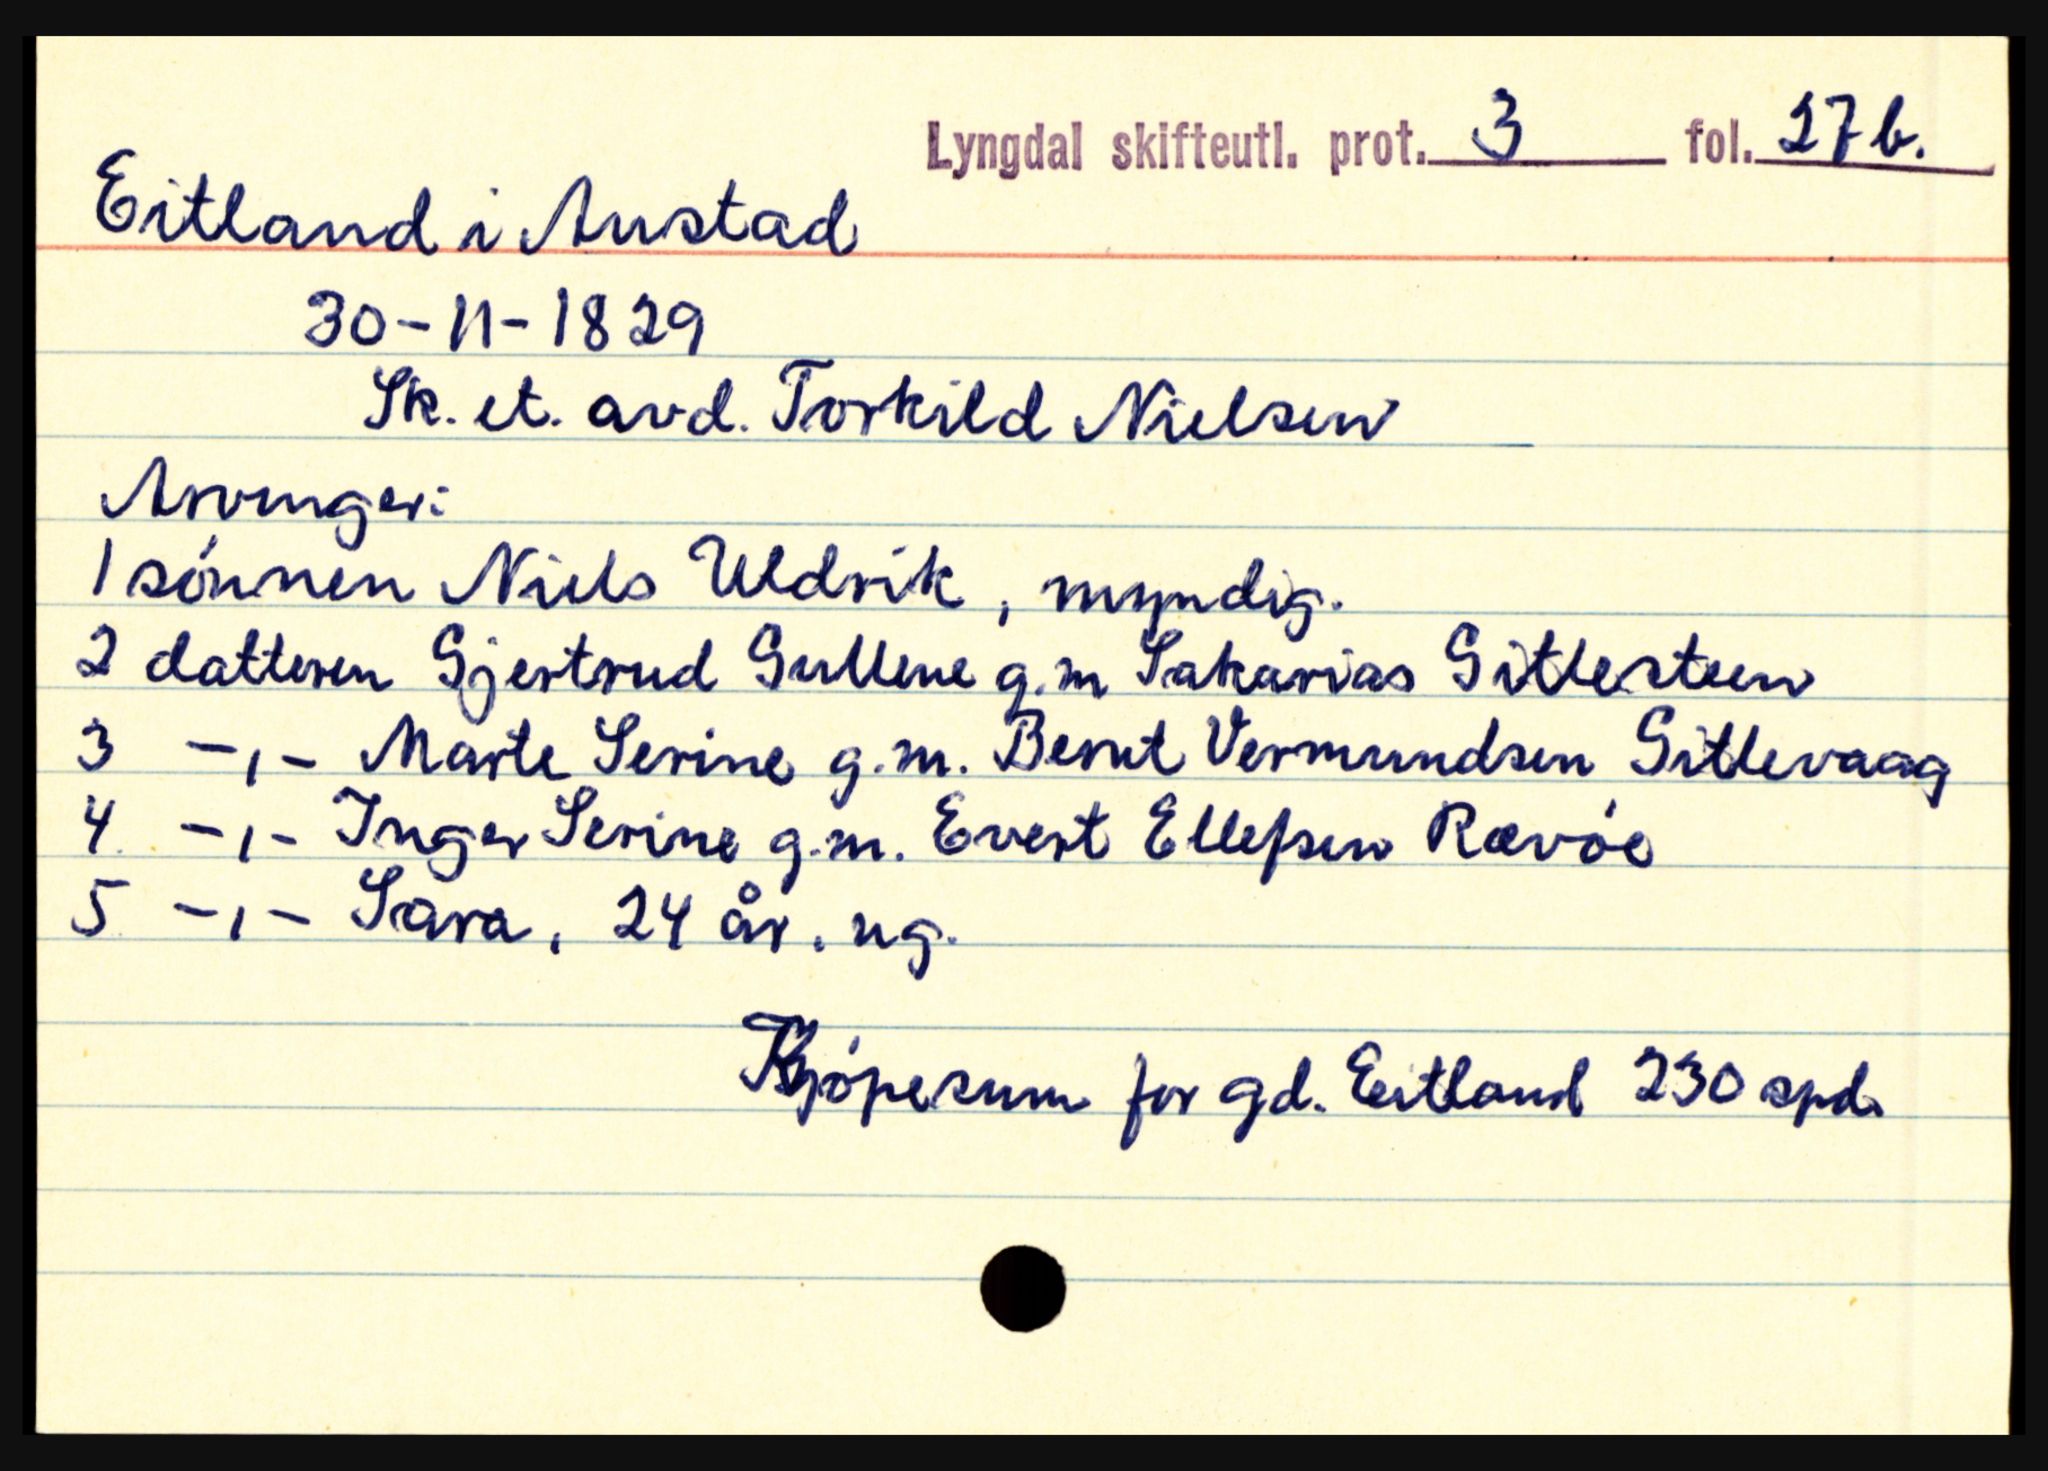 Lyngdal skifteutl. prot. 3 fol. 27b.
Eitland i Austad
30-11-1829
Sk. et. avd. Torkild Nielsen
Arvinger:
1 sónnen Niels Uldrik, myndig.
2 datteren Gjertrud Gullene g.m Sakarias Gitlesteen
3 -,- Marte Serine g.m. Bernt Vermundsen Gitlevaag
4. -,- Inger Serine g.m. Evert Ellefsen Rævóe
5. -,- Sara, 24 år. ug.
Kjópesum for gd. Eitland 230 spd.